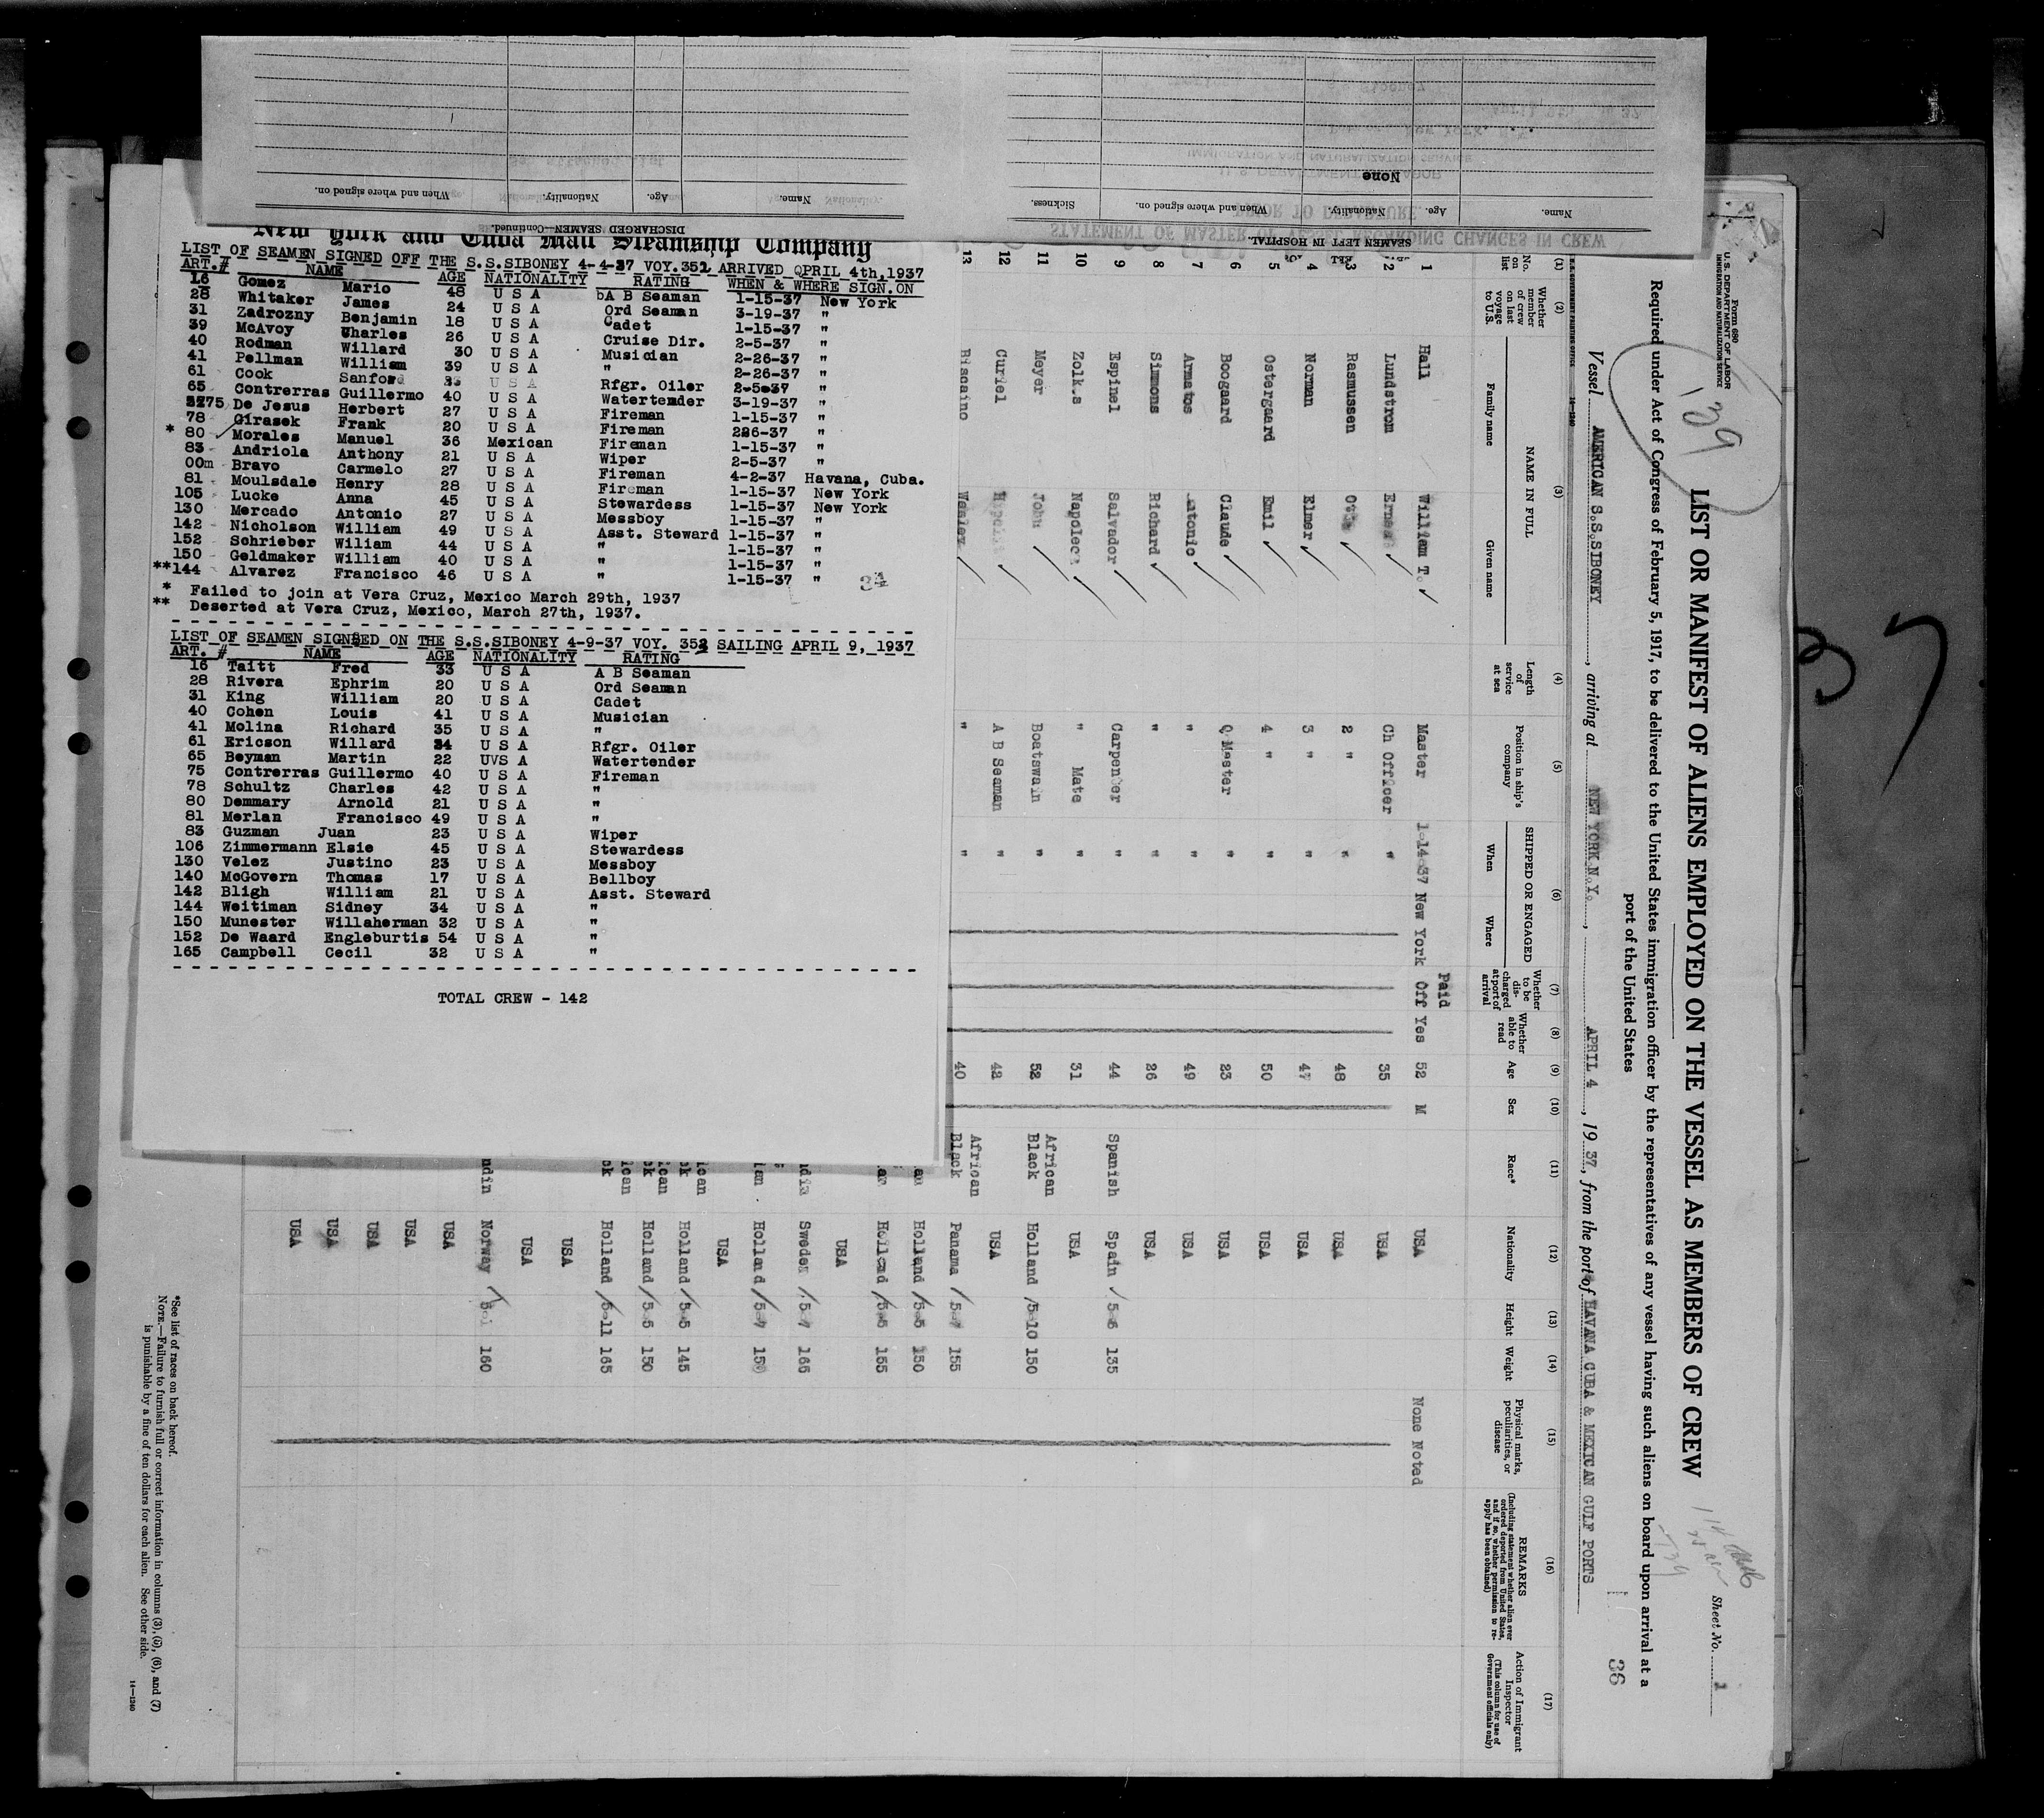 When and where signed on. Nationality. Age. Name.
DISCHARGED SEAMEN—Continued.
None
Sickness. When and where signed on. Nationality. Age. Name.
SEAMEN LEFT IN HOSPITAL.
STATEMENT OF MASTER OF VESSEL REGARDING CHANGES IN CREW
PRIOR TO DEPARTURE
U. S. DEPARTMENT OF LABOR
IMMIGRATION AND NATURALIZATION SERVICE
New York and Cuba Mail Steamship Company
LIST OF SEAMEN SIGNED OFF THE S.S.SIBONEY 4-4-37 VOY.351 ARRIVED QPRIL 4th,1937
ART.# NAME AGE NATIONALITY RATING WHEN & WHERE SIGN.ON
16 Gomez Mario 48 U S A bA B Seaman 1-15-37 New York
28 Whitaker James 24 U S A Ord Seaman 3-19-37 "
31 Zadrozny Benjamin 18 U S A Cadet 1-15-37 "
39 McAvoy Charles 26 U S A Cruise Dir. 2-5-37 "
40 Rodman Willard 30 U S A Musician 2-26-37 "
41 Pellman William 39 U S A " 2-26-37 "
61 Cook Sanford U S A Rfgr. Oiler 2-5-37 "
65 Contrerras Guillermo 40 U S A Watertender 3-19-37 "
75 De Jesus Herbert 27 U S A Fireman 1-15-37 "
78 Girasek Frank 20 U S A Fireman 226-37 "
* 80 Morales Manuel 36 Mexican Fireman 1-15-37 "
83 Andriola Anthony 21 U S A Wiper 2-5-37 "
00m Bravo Carmelo 27 U S A Fireman 4-2-37 Havana, Cuba.
81 Moulsdale Henry 28 U S A Fireman 1-15-37 New York
105 Lucke Anna 45 U S A Stewardess 1-15-37 New York
130 Mercado Antonio 27 U S A Messboy 1-15-37 "
142 Nicholson William 49 U S A Asst. Steward 1-15-37 "
152 Schrieber Wiliam 44 U S A " 1-15-37 "
150 Geldmaker William 40 U S A " 1-15-37 "
**144 Alvarez Francisco 46 U S A " 1-15-37 "
* Failed to join at Vera Cruz, Mexico March 29th, 1937
** Deserted at Vera Cruz, Mexico, March 27th, 1937.
LIST OF SEAMEN SIGNSED ON THE S.S.SIBONEY 4-9-37 VOY. 352 SAILING APRIL 9, 1937
ART. # NAME AGE NATIONALITY RATING
16 Taitt Fred 33 U S A A B Seaman
28 Rivera Ephrim 20 U S A Ord Seaman
31 King William 20 U S A Cadet
40 Cohen Louis 41 U S A Musician
41 Molina Richard 35 U S A "
61 Ericson Willard 34 U S A Rfgr. Oiler
65 Beyman Martin 22 UVS A Watertender
75 Contrerras Guillermo 40 U S A Fireman
78 Schultz Charles 42 U S A "
80 Demmary Arnold 21 U S A "
81 Merlan Francisco 49 U S A "
83 Guzman Juan 23 U S A Wiper
106 Zimmermann Elsie 45 U S A Stewardess
130 Velez Justino 23 U S A Messboy
140 McGovern Thomas 17 U S A Bellboy
142 Bligh William 21 U S A Asst. Steward
144 Weitiman Sidney 34 U S A "
150 Munester Willaherman 32 U S A "
152 De Waard Engleburtis 54 U S A "
165 Campbell Cecil 32 U S A "
TOTAL CREW - 142
Form 680
U. S. DEPARTMENT OF LABOR
IMMIGRATION AND NATURALIZATION SERVICE
Sheet No. 1
139
LIST OR MANIFEST OF ALIENS EMPLOYED ON THE VESSEL AS MEMBERS OF CREW
36
Required under Act of Congress of February 5, 1917, to be delivered to the United States immigration officer by the representatives of any vessel having such aliens on board upon arrival at a
port of the United States
Vessel AMERICAN S.S.SIBONEY, arriving at NEW YORK.N.Y., APRIL 4, 1937, from the port of HAVANA CUBA & MEXICAN GULF PORTS
U. S. GOVERNMENT PRINTING OFFICE 14—1240
(1) (2) (3) (4) (5) (6) (7) (8) (9) (10) (11) (12) (13) (14) (15) (16) (17)
No. on list
Whether member of crew on last voyage to U.S.
NAME IN FULL
Family name Given name
Length of service at sea
Position in ship's company
SHIPPED OR ENGAGED
When Where
Whether to be discharged at port of arrival
Whether able to read
Age
Sex
Race*
Nationality
Height
Weight
Physical marks, peculiarities, or disease
REMARKS
(Including statement whether alien ever ordered deported from United States, and if so, whether permission to reapply has been obtained)
Action of Immigrant Inspector
(This column for use of Government officials only)
Paid
1 Hall William T. Master 1-14-37 New York Off Yes 52 M USA None Noted
2 Lundstrom Ernest Ch Officer " 35 USA
3 Rasmussen 2 " " 48 USA
4 Norman Elmer 3 " " 47 USA
5 Ostergaard Emil 4 " " 50 USA
6 Boogaard Claude Q Master " 23 USA
7 Armatos Antonio " " 49 USA
8 Simmons Richard " " 26 USA
9 Espinel Salvador Carpenter " 44 Spanish Spain 5-6 135
10 Zolk.s Napoleon " Mate " 31 USA
11 Meyer John Boatswain " 52 African Black Holland 5-10 150
12 Curiel A B Seaman " 42 USA
13 Biscaino Wesley " " 40 African Black Panama 5-7 155
Holland 5-5 150
Holland 5-5 155
USA
Sweden 5-7 166
Holland 5-7
USA
Holland 5-5 145
Holland 5-5 150
Holland 5-11 165
USA
USA
Norway 160
USA
USA
USA
USA
USA
*See list of races on back hereof.
NOTE.—Failure to furnish full or correct information in columns (3), (5), (6), and (7)
is punishable by a fine of ten dollars for each alien. See other side.
14—1240